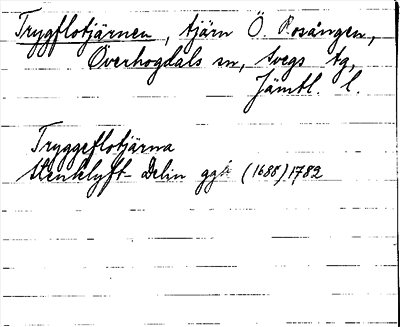 Trygflotjärnen, tjärn Ö. Rosången,
Överhogdals sn, Svegs tg,
Jämtl. l.
Tryggeflotjärna
Stenklyft- Delin ggk (1688) 1782